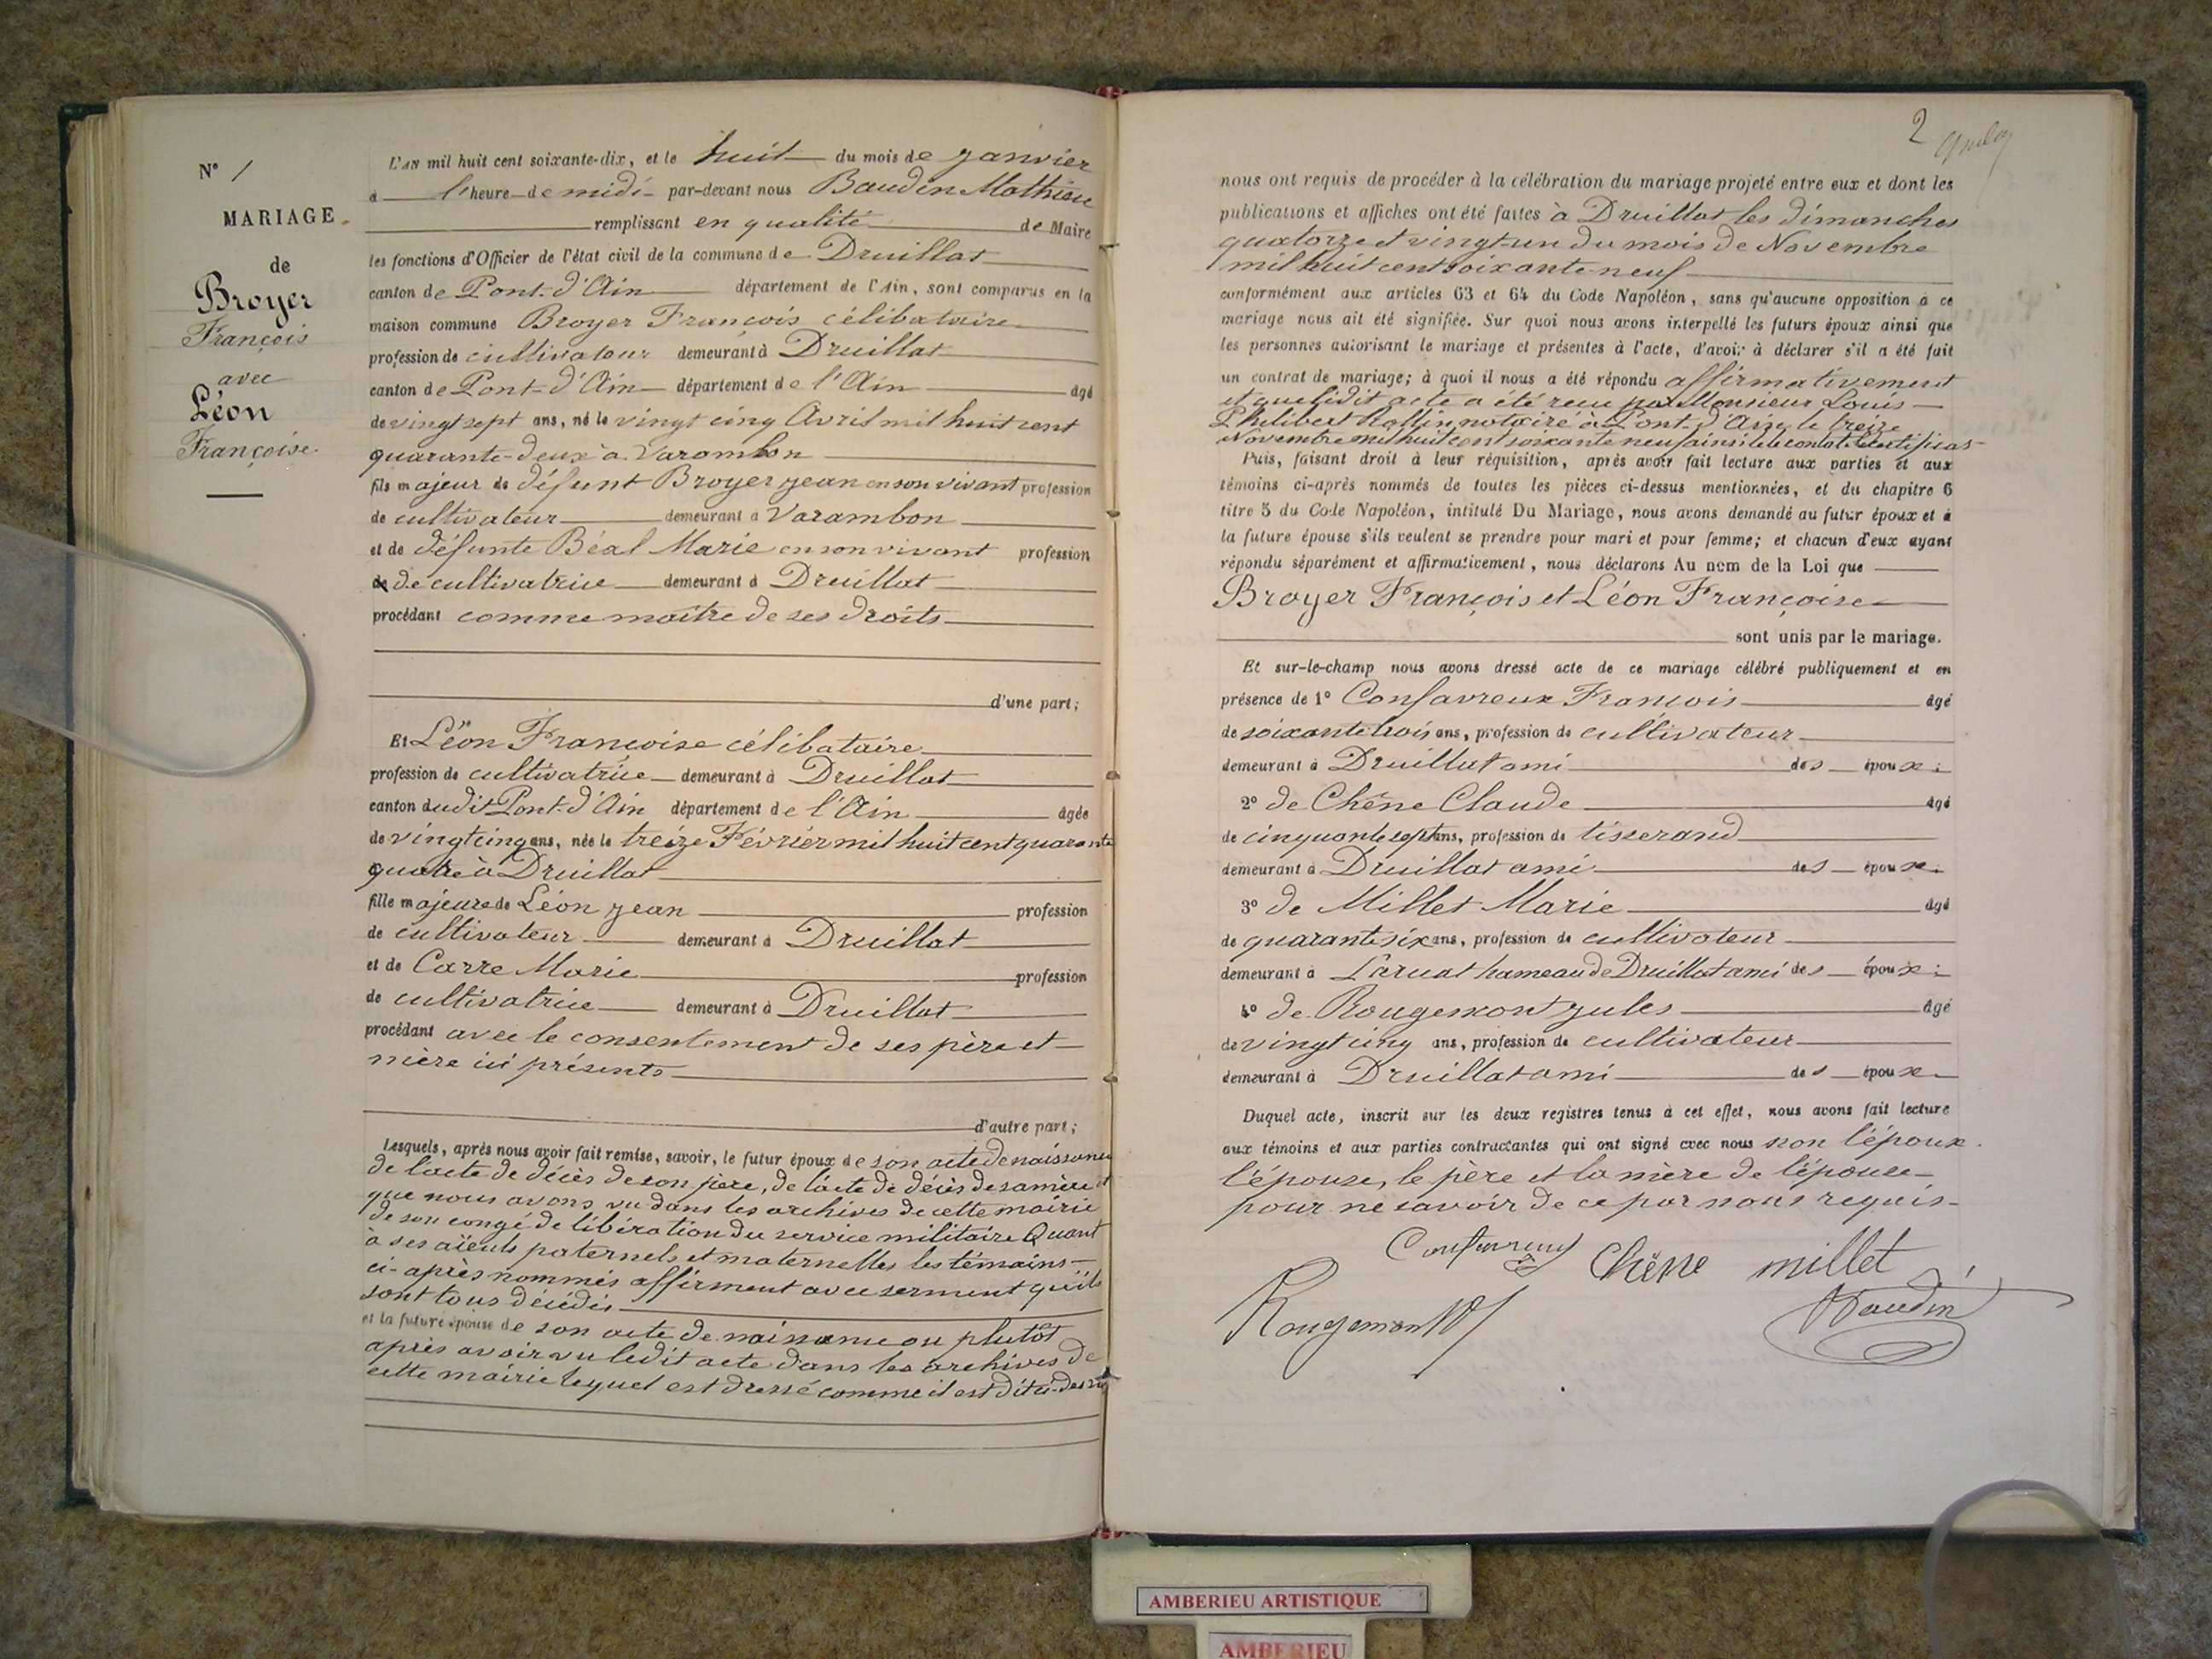 N° 1
MARIAGE
de
Broyer
François
avec
Léon
Françoise.
L'AN mil huit cent soixante-dix, et le huit du mois de janvier
à l'heure de midi par-devant nous Baudin Mathieu
remplissant en qualité de Maire
les fonctions d'Officier de l'état civil de la commune de Druillat
canton de Pont-d'Ain département de l'Ain, sont comparus en la
maison commune Broyer François célibataire
profession de cultivateur demeurant à Druillat
canton de Pont-d'Ain département de l'Ain âgé
de vingt sept ans, né le vingt cinq Avril mil huit cent
quarante-deux à Varambon
fils majeur de défunt Broyer jean en son vivant profession
de cultivateur demeurant à Varambon
et de défunte Béal Marie en son vivant profession
de cultivatrice demeurant à Druillat
procédant comme maître de ses droits
d'une part;
Et Léon Françoise célibataire
profession de cultivatrice demeurant à Druillat
canton dudit Pont-d'Ain département de l'Ain âgée
de vingt cinq ans, née le treize Février mil huit cent quarante
quatre à Druillat
fille majeure de Léon jean profession
de cultivateur demeurant à Druillat
et de Carre Marie profession
de cultivatrice demeurant à Druillat
procédant avec le consentement de ses père et
mère ici présents
d'autre part;
Lesquels, après nous avoir fait remise, savoir, le futur époux de son acte de naissance
de l'acte de décès de son père, de l'acte de décès de sa mère et
que nous avons vu dans les archives de cette mairie
de son congé de libération du service militaire Quant
à ses aïeuls paternels et maternelles les témoins
ci-après nommés affirment avec serment qu'ils
sont tous décédés
et la future épouse de son acte de naissance ou plutôt
après avoir vu ledit acte dans les archives de
cette mairie lequel est dressé comme il est dit ci-dessus
2
nous ont requis de procéder à la célébration du mariage projeté entre eux et dont les
publications et affiches ont été faites à Druillat les dimanches
quatorze et vingt-un du mois de Novembre
mil huit cent soixante-neuf
conformément aux articles 63 et 64 du Code Napoléon, sans qu'aucune opposition à ce
mariage nous ait été signifiée. Sur quoi nous avons interpellé les futurs époux ainsi que
les personnes autorisant le mariage et présentes à l'acte, d'avoir à déclarer s'il a été fait
un contrat de mariage; à quoi il nous a été répondu affirmativement
et que ledit acte a été reçu par Monsieur Louis
Philibert notaire à Pont-d'Ain le treize
Novembre mil huit cent soixante neuf ainsi le constate
Puis, faisant droit à leur réquisition, après avoir fait lecture aux parties et aux
témoins ci-après nommés de toutes les pièces ci-dessus mentionnées, et du chapitre 6
titre 5 du Code Napoléon, intitulé Du Mariage, nous avons demandé au futur époux et à
la future épouse s'ils veulent se prendre pour mari et pour femme; et chacun d'eux ayant
répondu séparément et affirmativement, nous déclarons Au nom de la Loi que
Broyer François et Léon Françoise
sont unis par le mariage.
Et sur-le-champ nous avons dressé acte de ce mariage célébré publiquement et en
présence de 1° Confavreux François âgé
de soixante trois ans, profession de cultivateur
demeurant à Druillat ami des époux;
2° de Chêne Claude âgé
de cinquante sept ans, profession de tisserand
demeurant à Druillat ami des époux.
3° de Millet Marie âgé
de quarante six ans, profession de cultivateur
demeurant à hameau de Druillat ami des époux;
4° de Rougemont jules âgé
de vingt cinq ans, profession de cultivateur
demeurant à Druillat ami des époux.
Duquel acte, inscrit sur les deux registres tenus à cet effet, nous avons fait lecture
aux témoins et aux parties contractantes qui ont signé avec nous non l'époux.
l'épouse, le père et la mère de l'épouse
pour ne savoir de ce par nous requis
Confavreux Chêne millet
Rougemont Baudin
AMBERIEU ARTISTIQUE
AMBERIEU